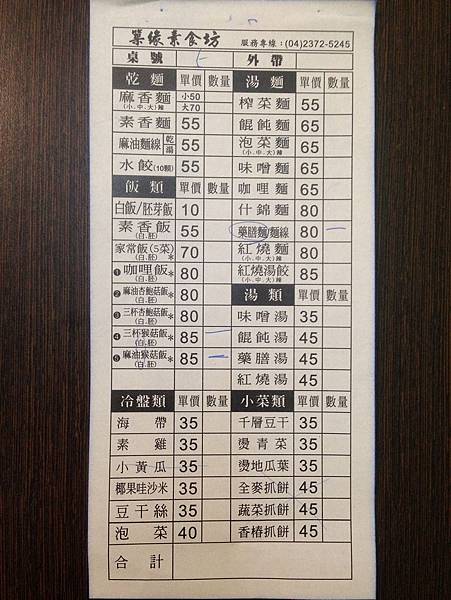 緣素食坊 服務專線:(04)2372-5245
桌號 外帶
乾麵 單價 數量 湯麵 單價 數量
麻香麵 (小.中.大)辣 小50 大70 榨菜麵 55
素香麵 55 餛飩麵 65
麻油麵線 乾湯 55 泡菜麵 (小.中.大)辣 65
水餃(10顆) 55 味噌麵 65
飯類 單價 數量 咖哩麵 65
白飯/胚芽飯 10 什錦麵 80
素香飯 (白.胚) 55 藥膳麵/麵線 80
家常飯(5菜) (白.胚)* 70 紅燒麵 (小.中.大)辣 80
❶咖哩飯* (白.胚) 80 紅燒湯餃 (小.中.大)辣 85
❷麻油杏鮑菇飯* (白.胚) 80 湯類 單價 數量
❸三杯杏鮑菇飯* (白.胚) 80 味噌湯 35
❹三杯猴菇飯* (白.胚) 85 餛飩湯 45
❺麻油猴菇飯* (白.胚) 85 藥膳湯 45
紅燒湯 45
冷盤類 單價 數量 小菜類 單價 數量
海帶 35 千層豆干 35
素雞 35 燙青菜 35
小黃瓜 35 燙地瓜葉 35
椰果哇沙米 35 全麥抓餅 45
豆干絲 35 蔬菜抓餅 45
泡菜 40 香椿抓餅 45
合計